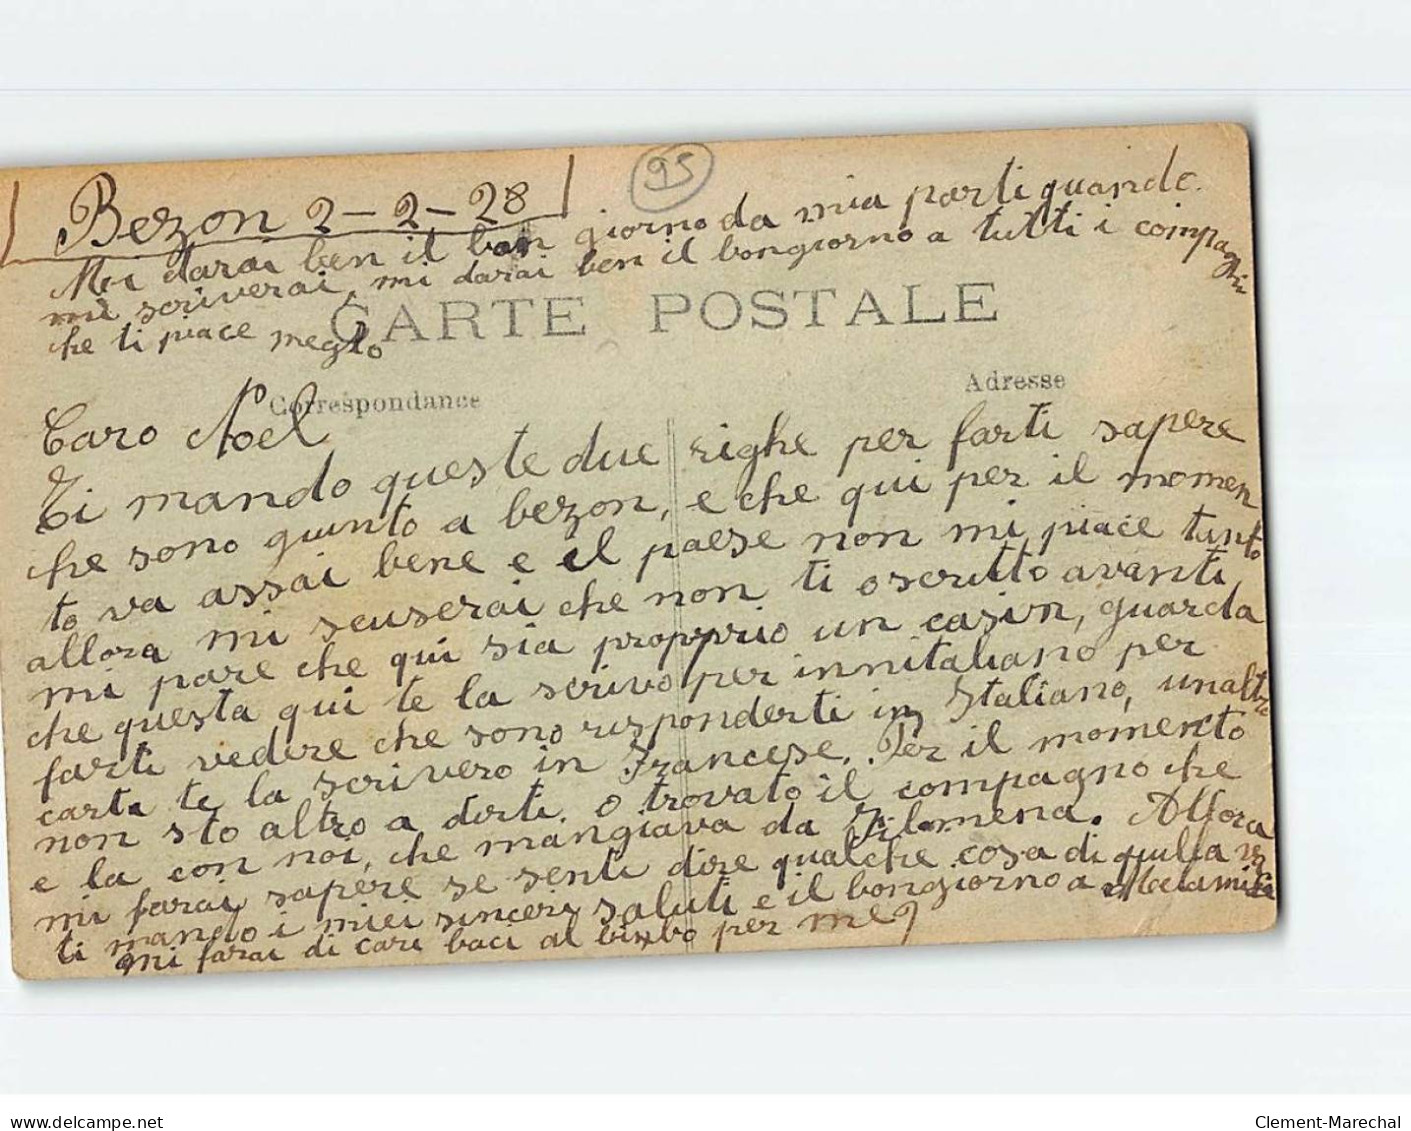 95
Bezon 2-2-28
Mi darai ben il bon giorno da mia parti quando
mi scriverai, mi darai ben il bongiorno a tutti i compagni
che ti piace meglio
CARTE POSTALE
Correspondance
Adresse
Caro Noel
Ti mando queste due righe per farti sapere
che sono giunto a bezon, e che qui per il momen
to va assai bene e il paese non mi piace tanto
allora mi scuserai che non ti o scritto avanti
mi pare che qui sia proprio un casin, guarda
che questa qui te la scrivo per innitaliano per
farti vedere che sono risponderti in Italiano, unaltra
carta te la scrivero in Francese. Per il momento
non sto altro a dirti. o trovato il compagno che
e la con noi, che mangiava da Filomena. Allora
mi farai sapere se senti dire qualche cosa di
ti mando i miei sinceri saluti e il bongiorno a
mi farai di cari baci al bimbo per me
Clement-Marechal
www.delcampe.net